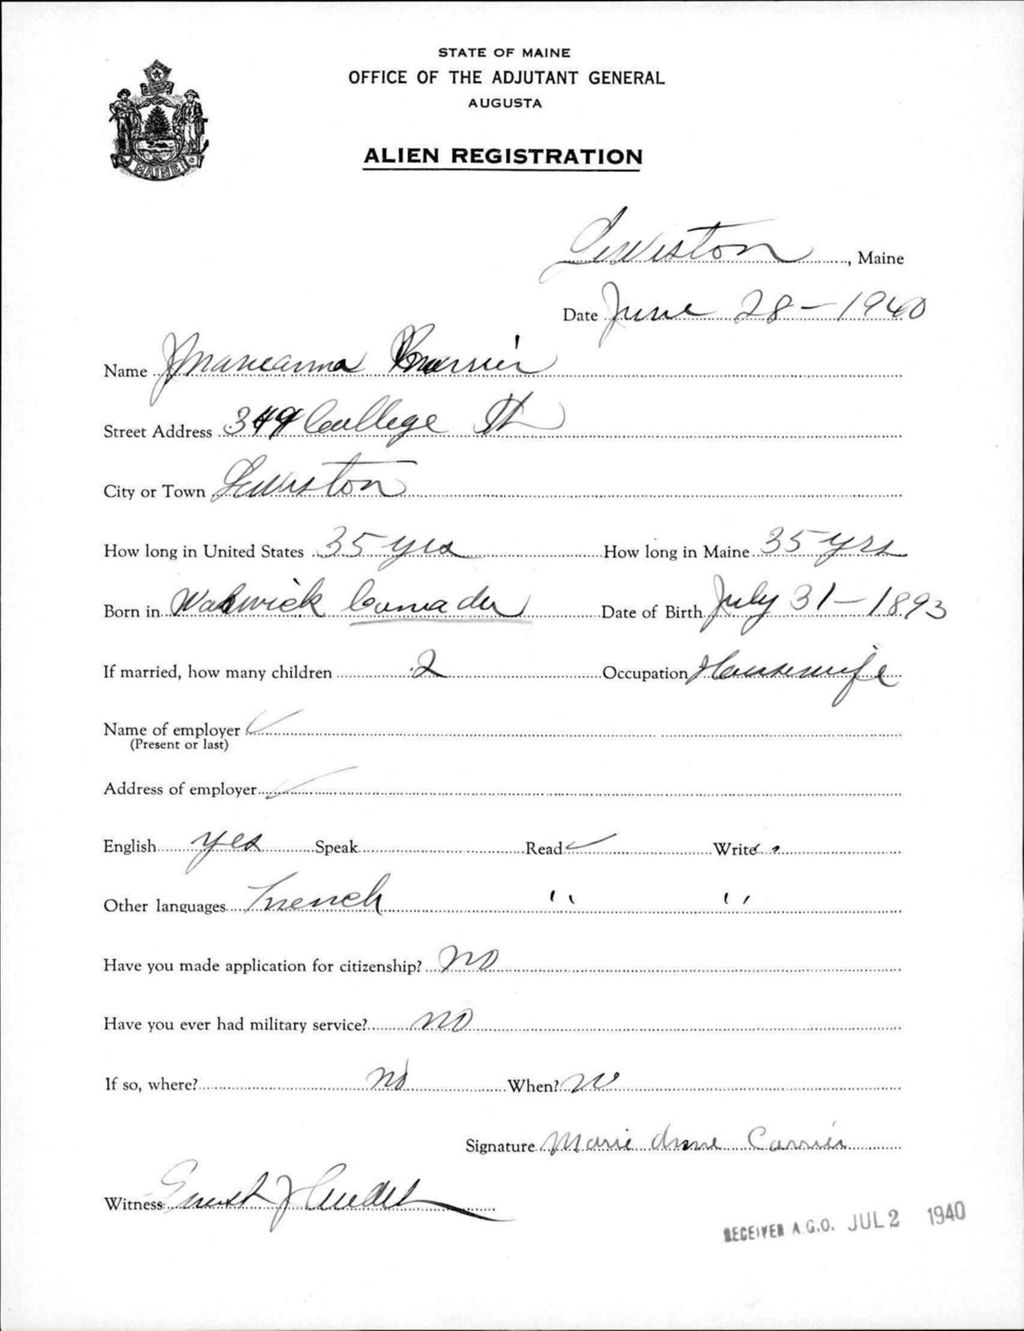 STATE OF MAINE
OFFICE OF THE ADJUTANT GENERAL
AUGUSTA
ALIEN REGISTRATION
MAINE
Lewiston, Maine
Date June 28 - 1940
Name Marieanna
Street Address 349 College St
City or Town Lewiston
How long in United States 35 yrs How long in Maine 35 yrs
Born in Warwick Canada Date of Birth July 31 - 1893
If married, how many children 2 Occupation Housewife
Name of employer ✓
(Present or last)
Address of employer ✓
English yes Speak Read ✓ Write
Other languages French " "
Have you made application for citizenship? No
Have you ever had military service? no
If so, where? no When? no
Signature Marie Anne Carrier
Witness Ernest J
RECEIVED A.G.O. JUL 2 1940